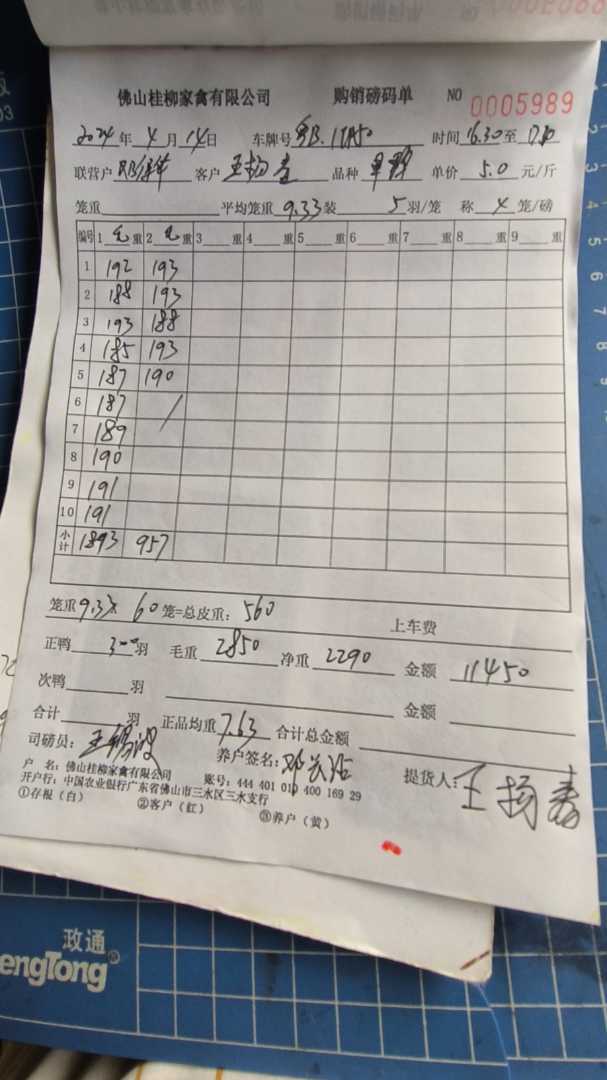 佛山桂柳家禽有限公司 购销磅码单 NO 0005989
2024年4月14日 车牌号 时间16.30至
联营户 客户 王扬春 品种 单价 5.0 元/斤
笼重 平均笼重 9.33 装 5 羽/笼 称 4 笼/磅
编号 1 毛 重 2 毛 重 3 重 4 重 5 重 6 重 7 重 8 重 9 重
1 192 193
2 188 193
3 193 188
4 185 193
5 187 190
6 187 /
7 189
8 190
9 191
10 191
小计 1893 957
笼重 9.33 x 60 笼=总皮重: 560 上车费
正鸭 300 羽 毛重 2850 净重 2290 金额 11450
次鸭 羽 金额
合计 羽 正品均重 7.63 合计总金额
司磅员: 王锡波 养户签名: 提货人: 王扬春
户 名: 佛山桂柳家禽有限公司 账号: 444 401 010 400 169 29
开户行: 中国农业银行广东省佛山市三水区三水支行
①存根(白) ②客户(红) ③养户(黄)
政通
engTong®